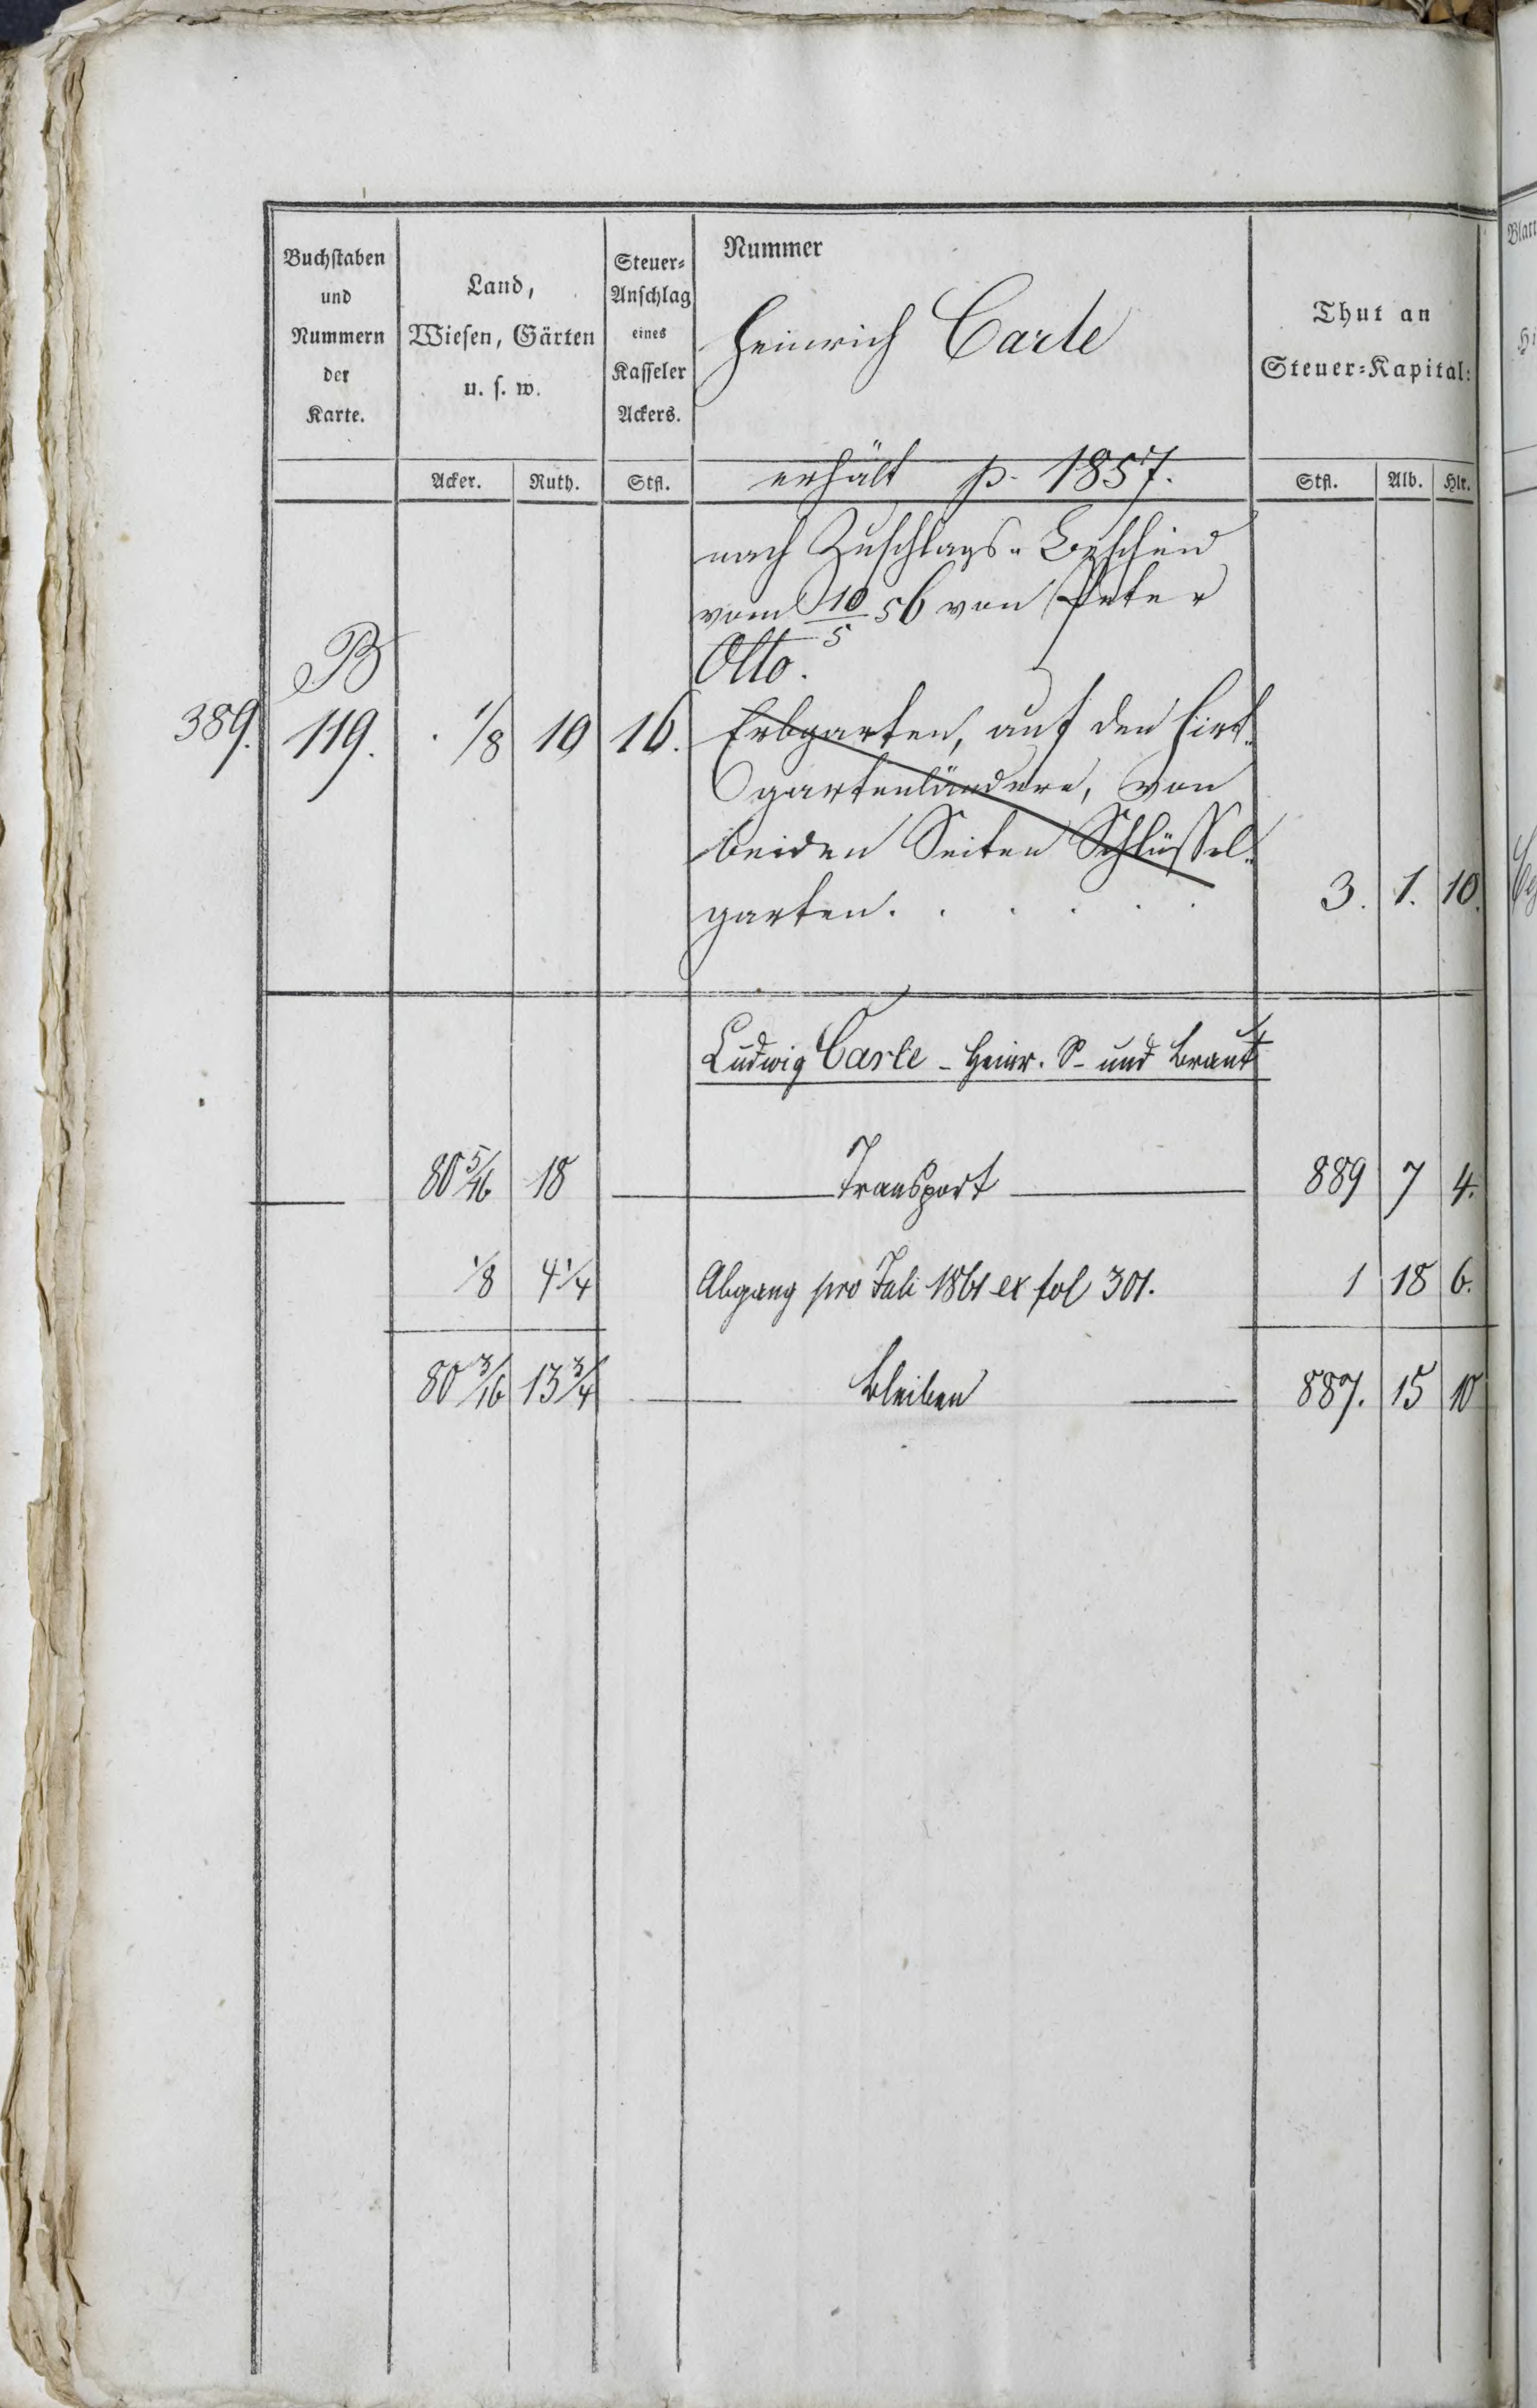 Buchstaben und Nummern der Karte.
Land, Wiesen, Gärten u. s. w.
Steuer-Anschlag eines Kasseler Ackers.
Nummer
Heinrich Carle
Thut an Steuer-Kapital:
Acker. Ruth. Stfl. erhält p. 1857. Stfl. Alb. Hlr.
nach Zuschlags-Bescheid
vom 10/5 56 von Peter
Otto.
B
389. 119. 1/8 10 16. Erbgarten, auf den
gartenländern, von
beiden Seiten Schlüssel-
garten. . . . . . 3. 1. 10.
Ludwig Carle - Heinr. S - und Braut
80 5/16 18 Transport 889 7 4.
1/8 4 1/4 Abgang pro Juli 1861 ex fol 301. 1 18 6.
80 3/16 13 3/4 bleiben 887. 15 10
Blatt